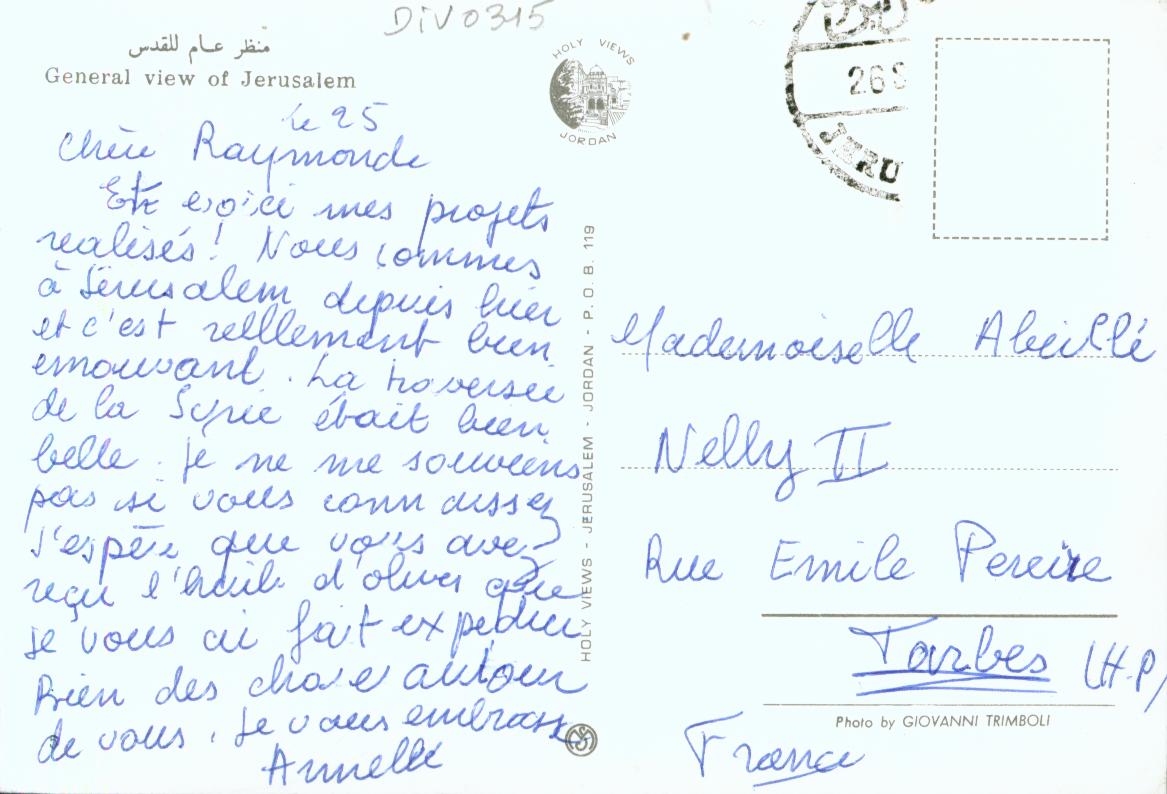 DIV0315
منظر عام للقدس
General view of Jerusalem
HOLY VIEWS
JORDAN
26 S
JERU
le 25
Chère Raymonde
Et voici mes projets
realisés ! Nous sommes
à Jérusalem depuis hier
et c'est rellement bien
emouvant. La traversée
de la Syrie était bien
belle. Je ne me souviens
pas si vous connaissez
J'espère que vous avez
reçu l'huile d'olives que
je vous ai fait expedier
Bien des chose autour
de vous. Je vous embrasse
Annelle
HOLY VIEWS - JERUSALEM - JORDAN - P. O. B. 119
Mademoiselle Abeillé
Nelly II
Rue Emile Pereire
Tarbes (H.P)
France
Photo by GIOVANNI TRIMBOLI